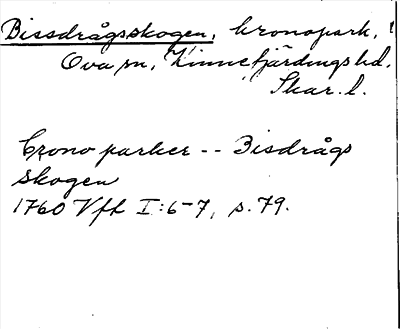 Bissdrågsskogen, kronopark,
Ova sn, Kinnefjärdings hd.
Skar. l.
Crono parker -- Bisdrågs
skogen
1760 Vfl I:6-7, s. 79.